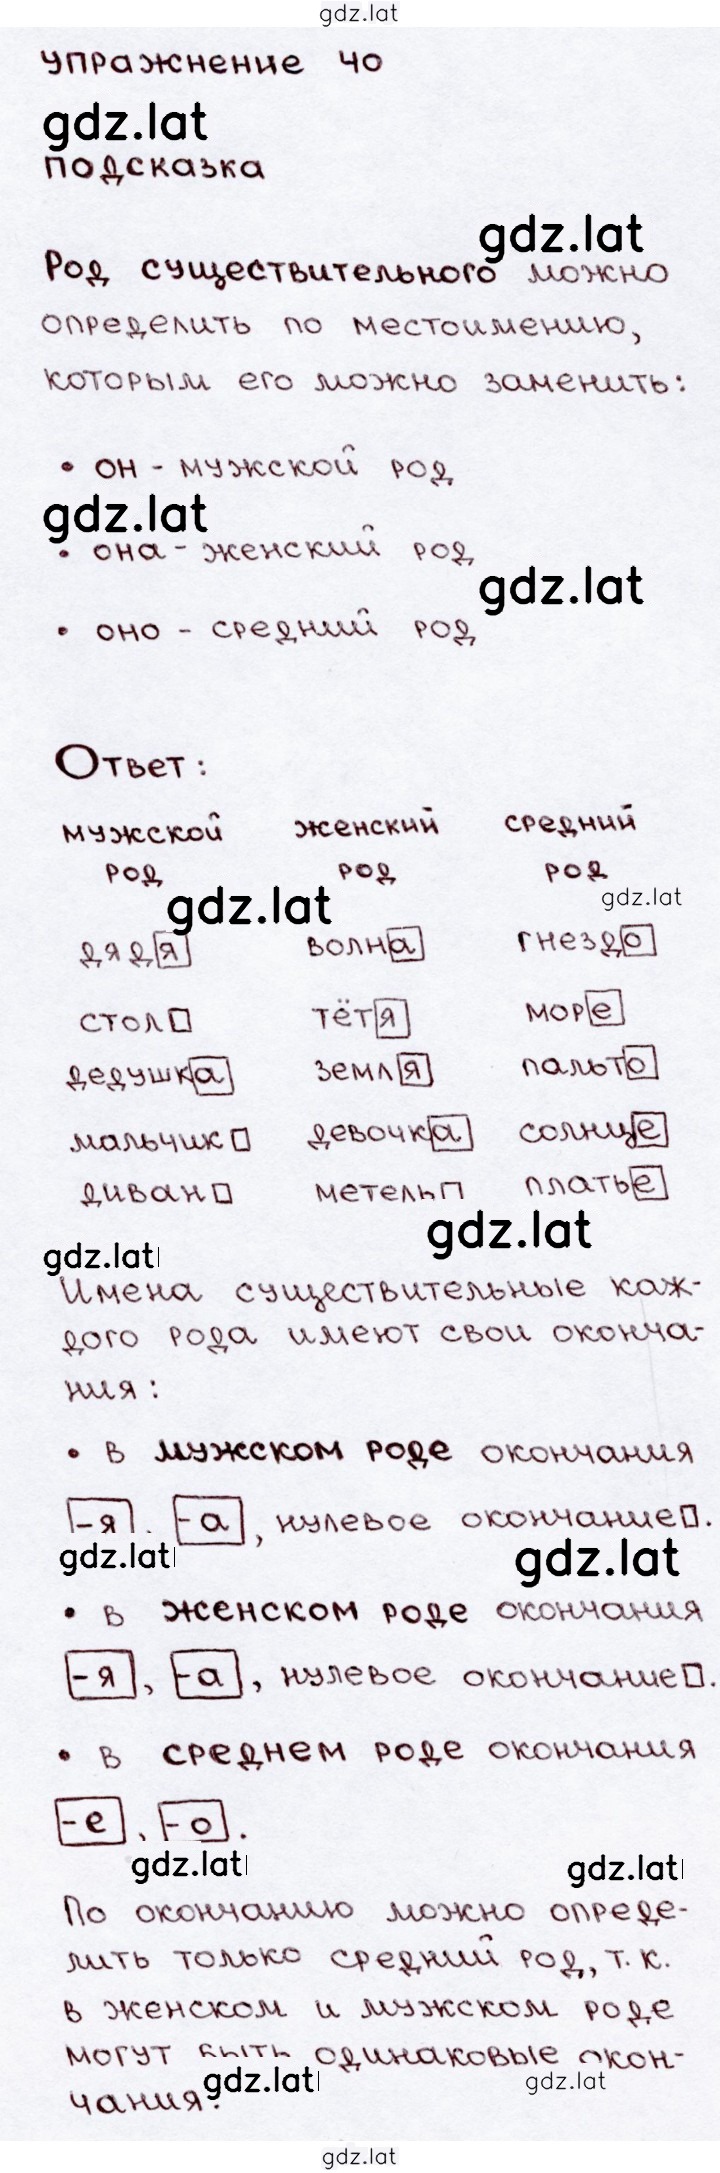 gdz.lat
Упражнение 40
gdz.lat
подсказка
gdz.lat
Род существительного можно
определить по местоимению,
которым его можно заменить:
• он - мужской род
gdz.lat
• она - женский род
gdz.lat
• оно - средний род
Ответ:
мужской женский средний
род род род
gdz.lat gdz.lat
дядя волна гнездо
стол тётя море
дедушка земля пальто
мальчик девочка солнце
диван метель платье
gdz.lat
gdz.lat
Имена существительные каж-
дого рода имеют свои оконча-
ния:
• в мужском роде окончания
-я, -а, нулевое окончание.
gdz.lat gdz.lat
• в женском роде окончания
-я, -а, нулевое окончание.
• в среднем роде окончания
-е, -о.
gdz.lat gdz.lat
По окончанию можно опреде-
лить только средний род, т.к.
в женском и мужском роде
могут быть одинаковые окон-
gdz.lat gdz.lat
чания.
gdz.lat